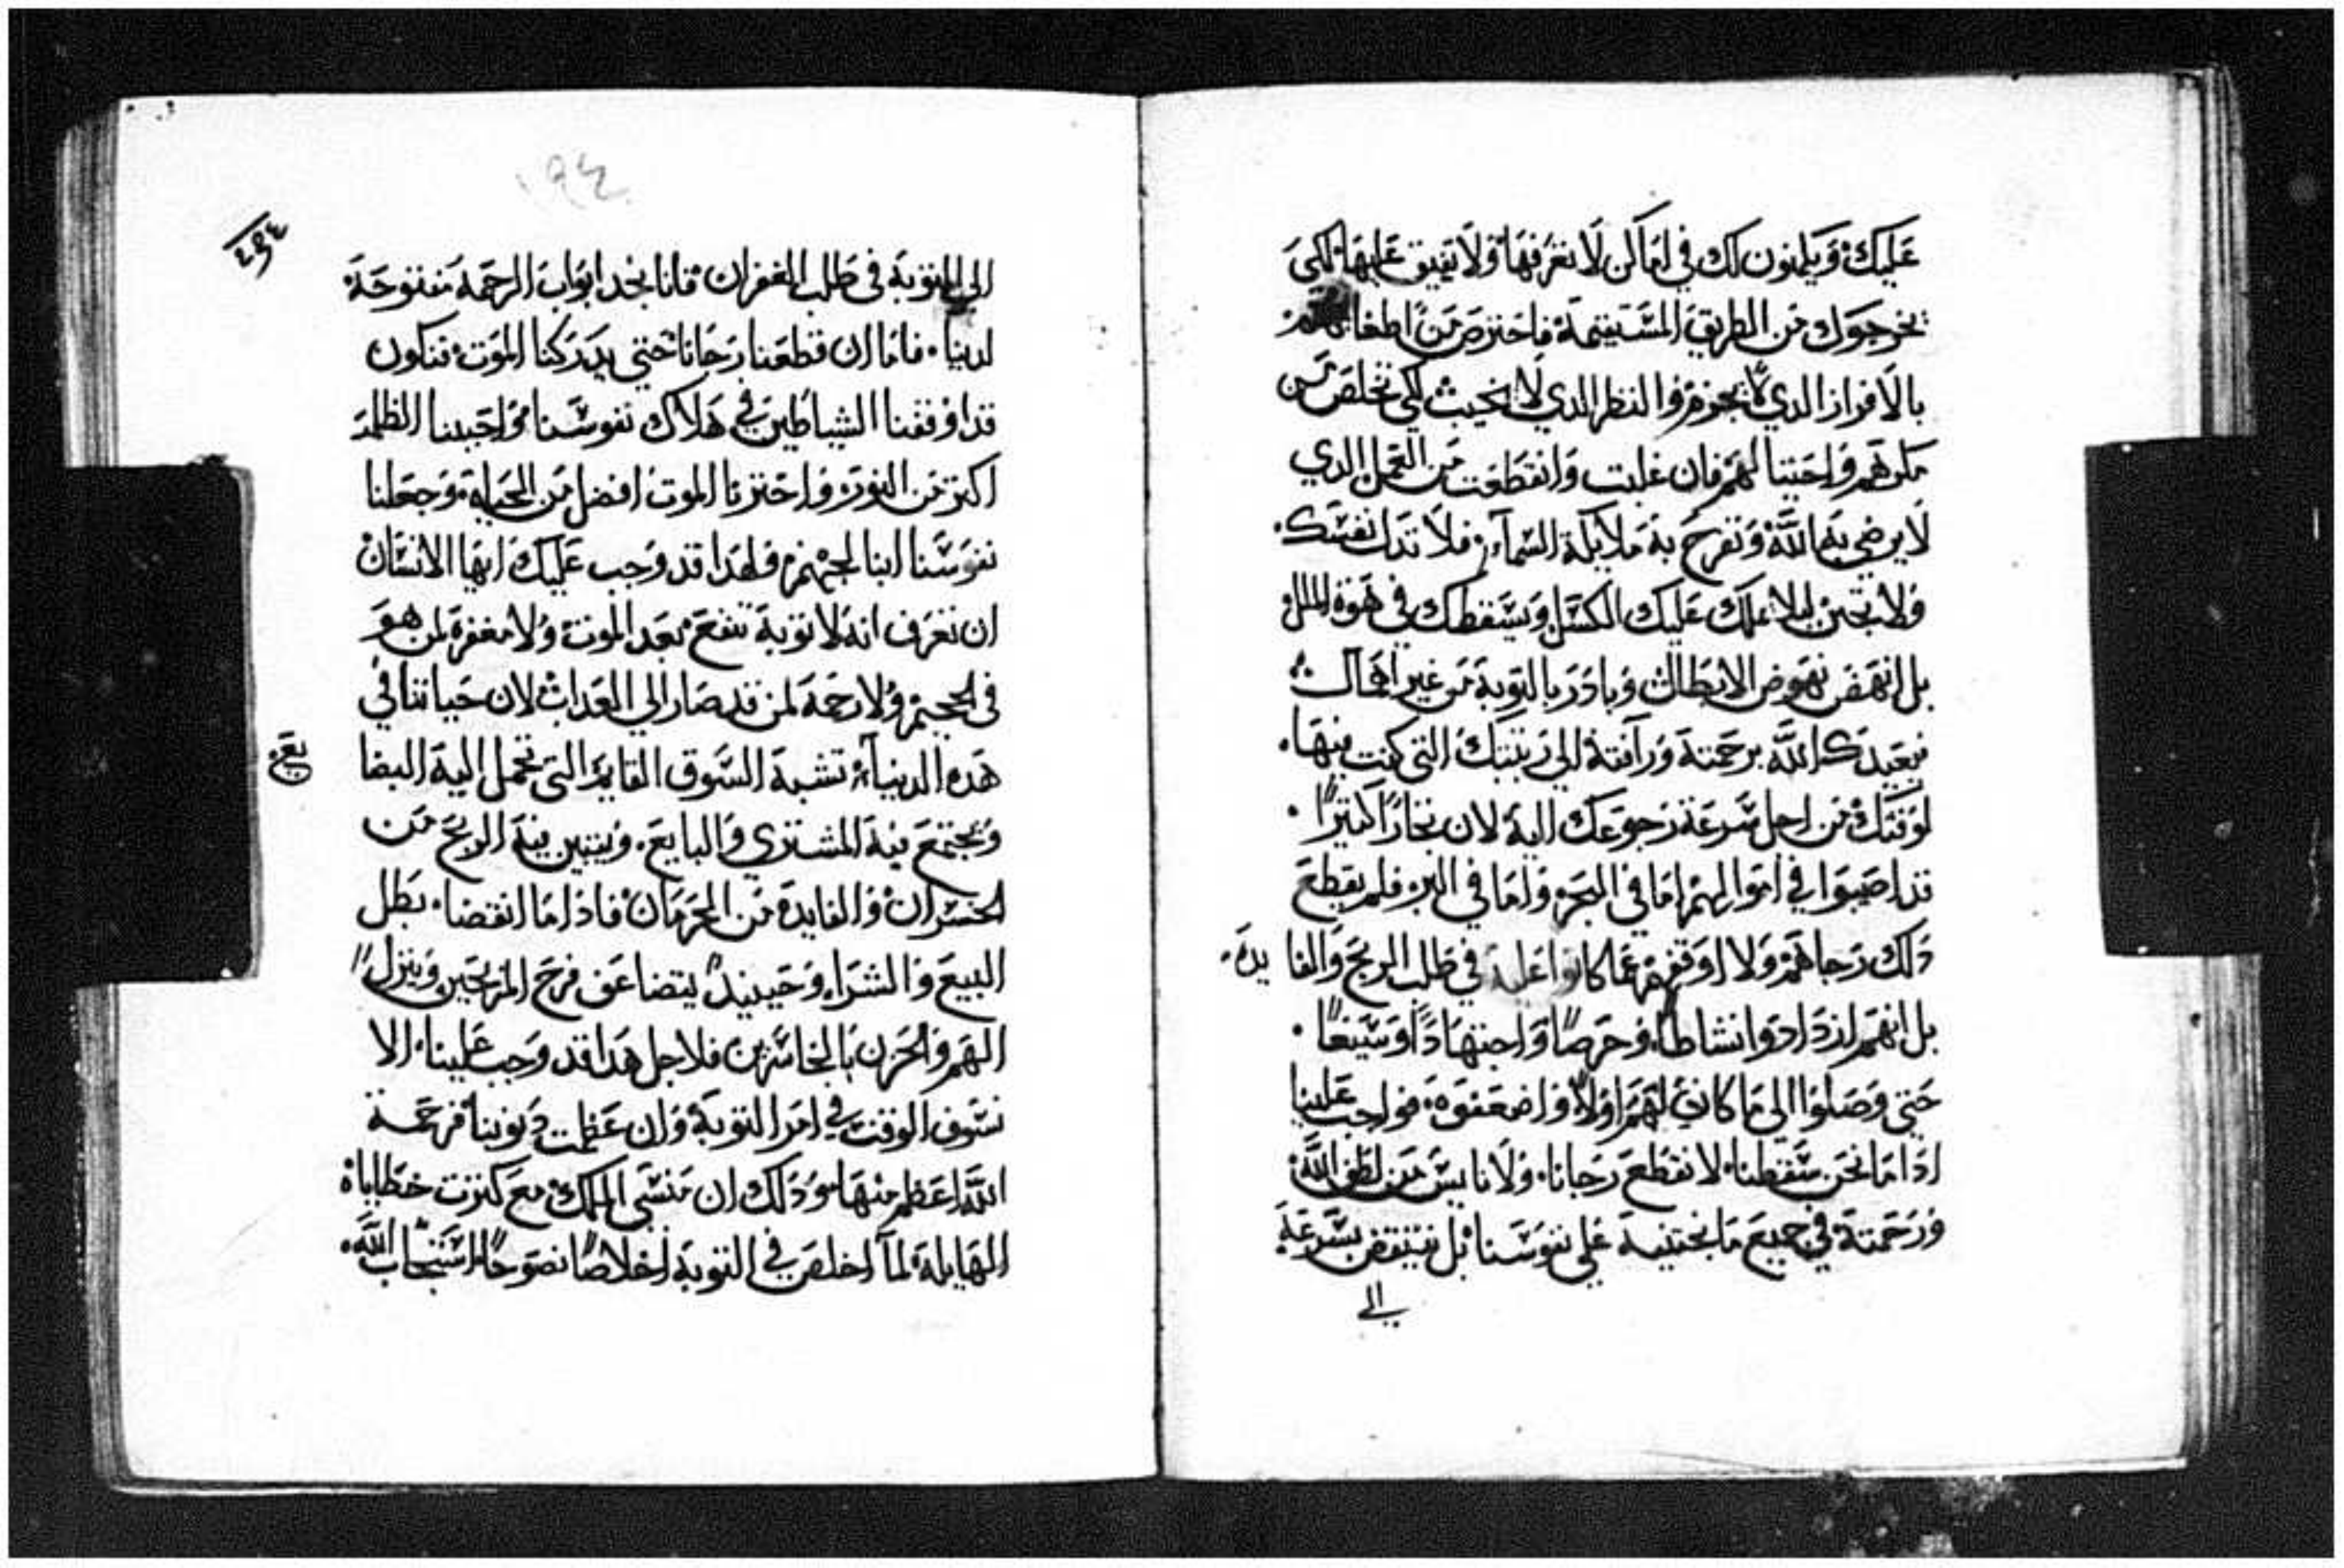 عليك ويكمنون لك في اماكن لا تعرفها ولا تفيق عليها لكي
يخرجوك من الطريق المستقيمة فاحترص من اطغايهم
بالافراز الدي لا يجوم والنظر الدي لا يخيب لكي تخلص من
مكرهم واحتيالهم فان غلبت وانقطعت من العمل الدي
لا يرضي به الله وتفرح به ملايكة السماء فلا تدل نفسك
ولا تجبن ليلا يملك عليك الكسل ويسقطك في هوة الملل
بل انهض نهوض الابطال وبادر بالتوبة من غير اهمال
فيعيدك الله برحمته ورافته الي رتبتك التي كنت فيها
لوقتك من اجل سرعة رجوعك اليه لان تجارا كثيرا
قد اصيبوا في اموالهم اما في البحر واما في البر فلم يقطع
دلك رجاهم ولا اوقفهم عما كانوا عليه في طلب الربح والفايده
بل انهم ازدادوا نشاطا وحرصا واجتهادا وسيعا
حتي وصلوا الي ما كان لهم اولا واضعفوه فواجب علينا
ادا ما نحن سقطنا لا نقطع رجانا ولا نايس من لطف الله
ورحمته في جميع ما نجتنيه علي نفوسنا بل ننتفض بسرعة
الي
١٩٤
٢٩٤
الي التوبة في طلب الغفران فاننا نجد ابواب الرحمة مفتوحة
لدينا فاما ان قطعنا رجانا حتي يدركنا الموت فنكون
قد اوقفنا الشياطين في هلاك نفوسنا واحببنا الظلمة
اكتر من النور واخترنا الموت افضل من الحياة وجعلنا
نفوسنا ابنا لجهنم فلهدا قد وجب عليك ايها الانسان
ان تعرف انه لا توبة تنفع بعد الموت ولا مغفرة لمن هو
في الجحيم ولا رحمة لمن قد صار الي العداب لان حياتنا في
هده الدنيا تشبه السوق القايم التي تحمل اليه البضا
يع
ويجتمع فيه المشتري والبايع ويتبين فيه الربح من
الخسران والفايدة من الحرمان فاذا ما انقضا بطل
البيع والشراء وحينيد يتضاعف فرح المربحين وينزل
الهم والحزن بالخاسرين فلاجل هدا قد وجب علينا الا
نسوف الوقت في امر التوبة وان عظمت دنوبنا فرحمة
الله اعظم منها ودلك ان منسي الملك مع كترت خطاياه
الهايلة لما اخلص في التوبة اخلاصا نصوحا استجاب الله